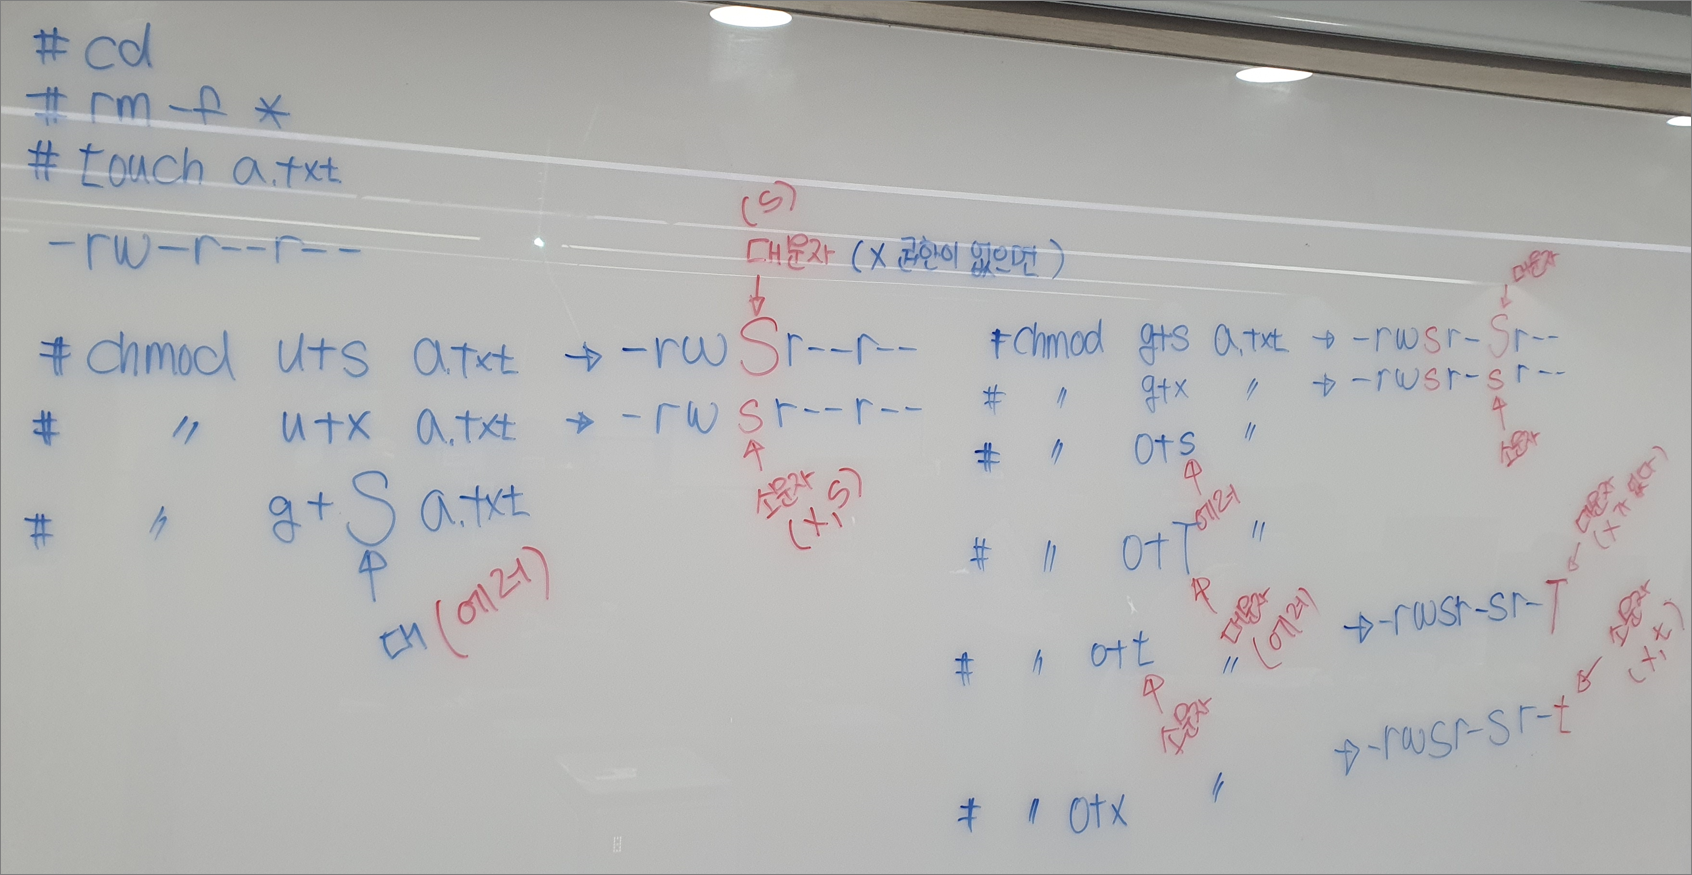 # cd
# rm -f *
# touch a.txt
-rw-r--r--
(S)
대문자 (x 권한이 없으면)
# chmod u+s a.txt → -rwSr--r--
# 〃 u+x a.txt → -rwsr--r--
소문자
(x,s)
# 〃 g+S a.txt
대 (에러)
대문자
# chmod g+s a.txt → -rwsr-Sr--
# 〃 g+x 〃 → -rwsr-sr--
소문자
# 〃 o+s 〃
에러
# 〃 o+T 〃
대문자
(에러)
# 〃 o+t 〃 → -rwsr-sr-T
소문자
대문자
(x가 없다)
# 〃 o+x 〃 → -rwsr-sr-t
소문자
(x,t)